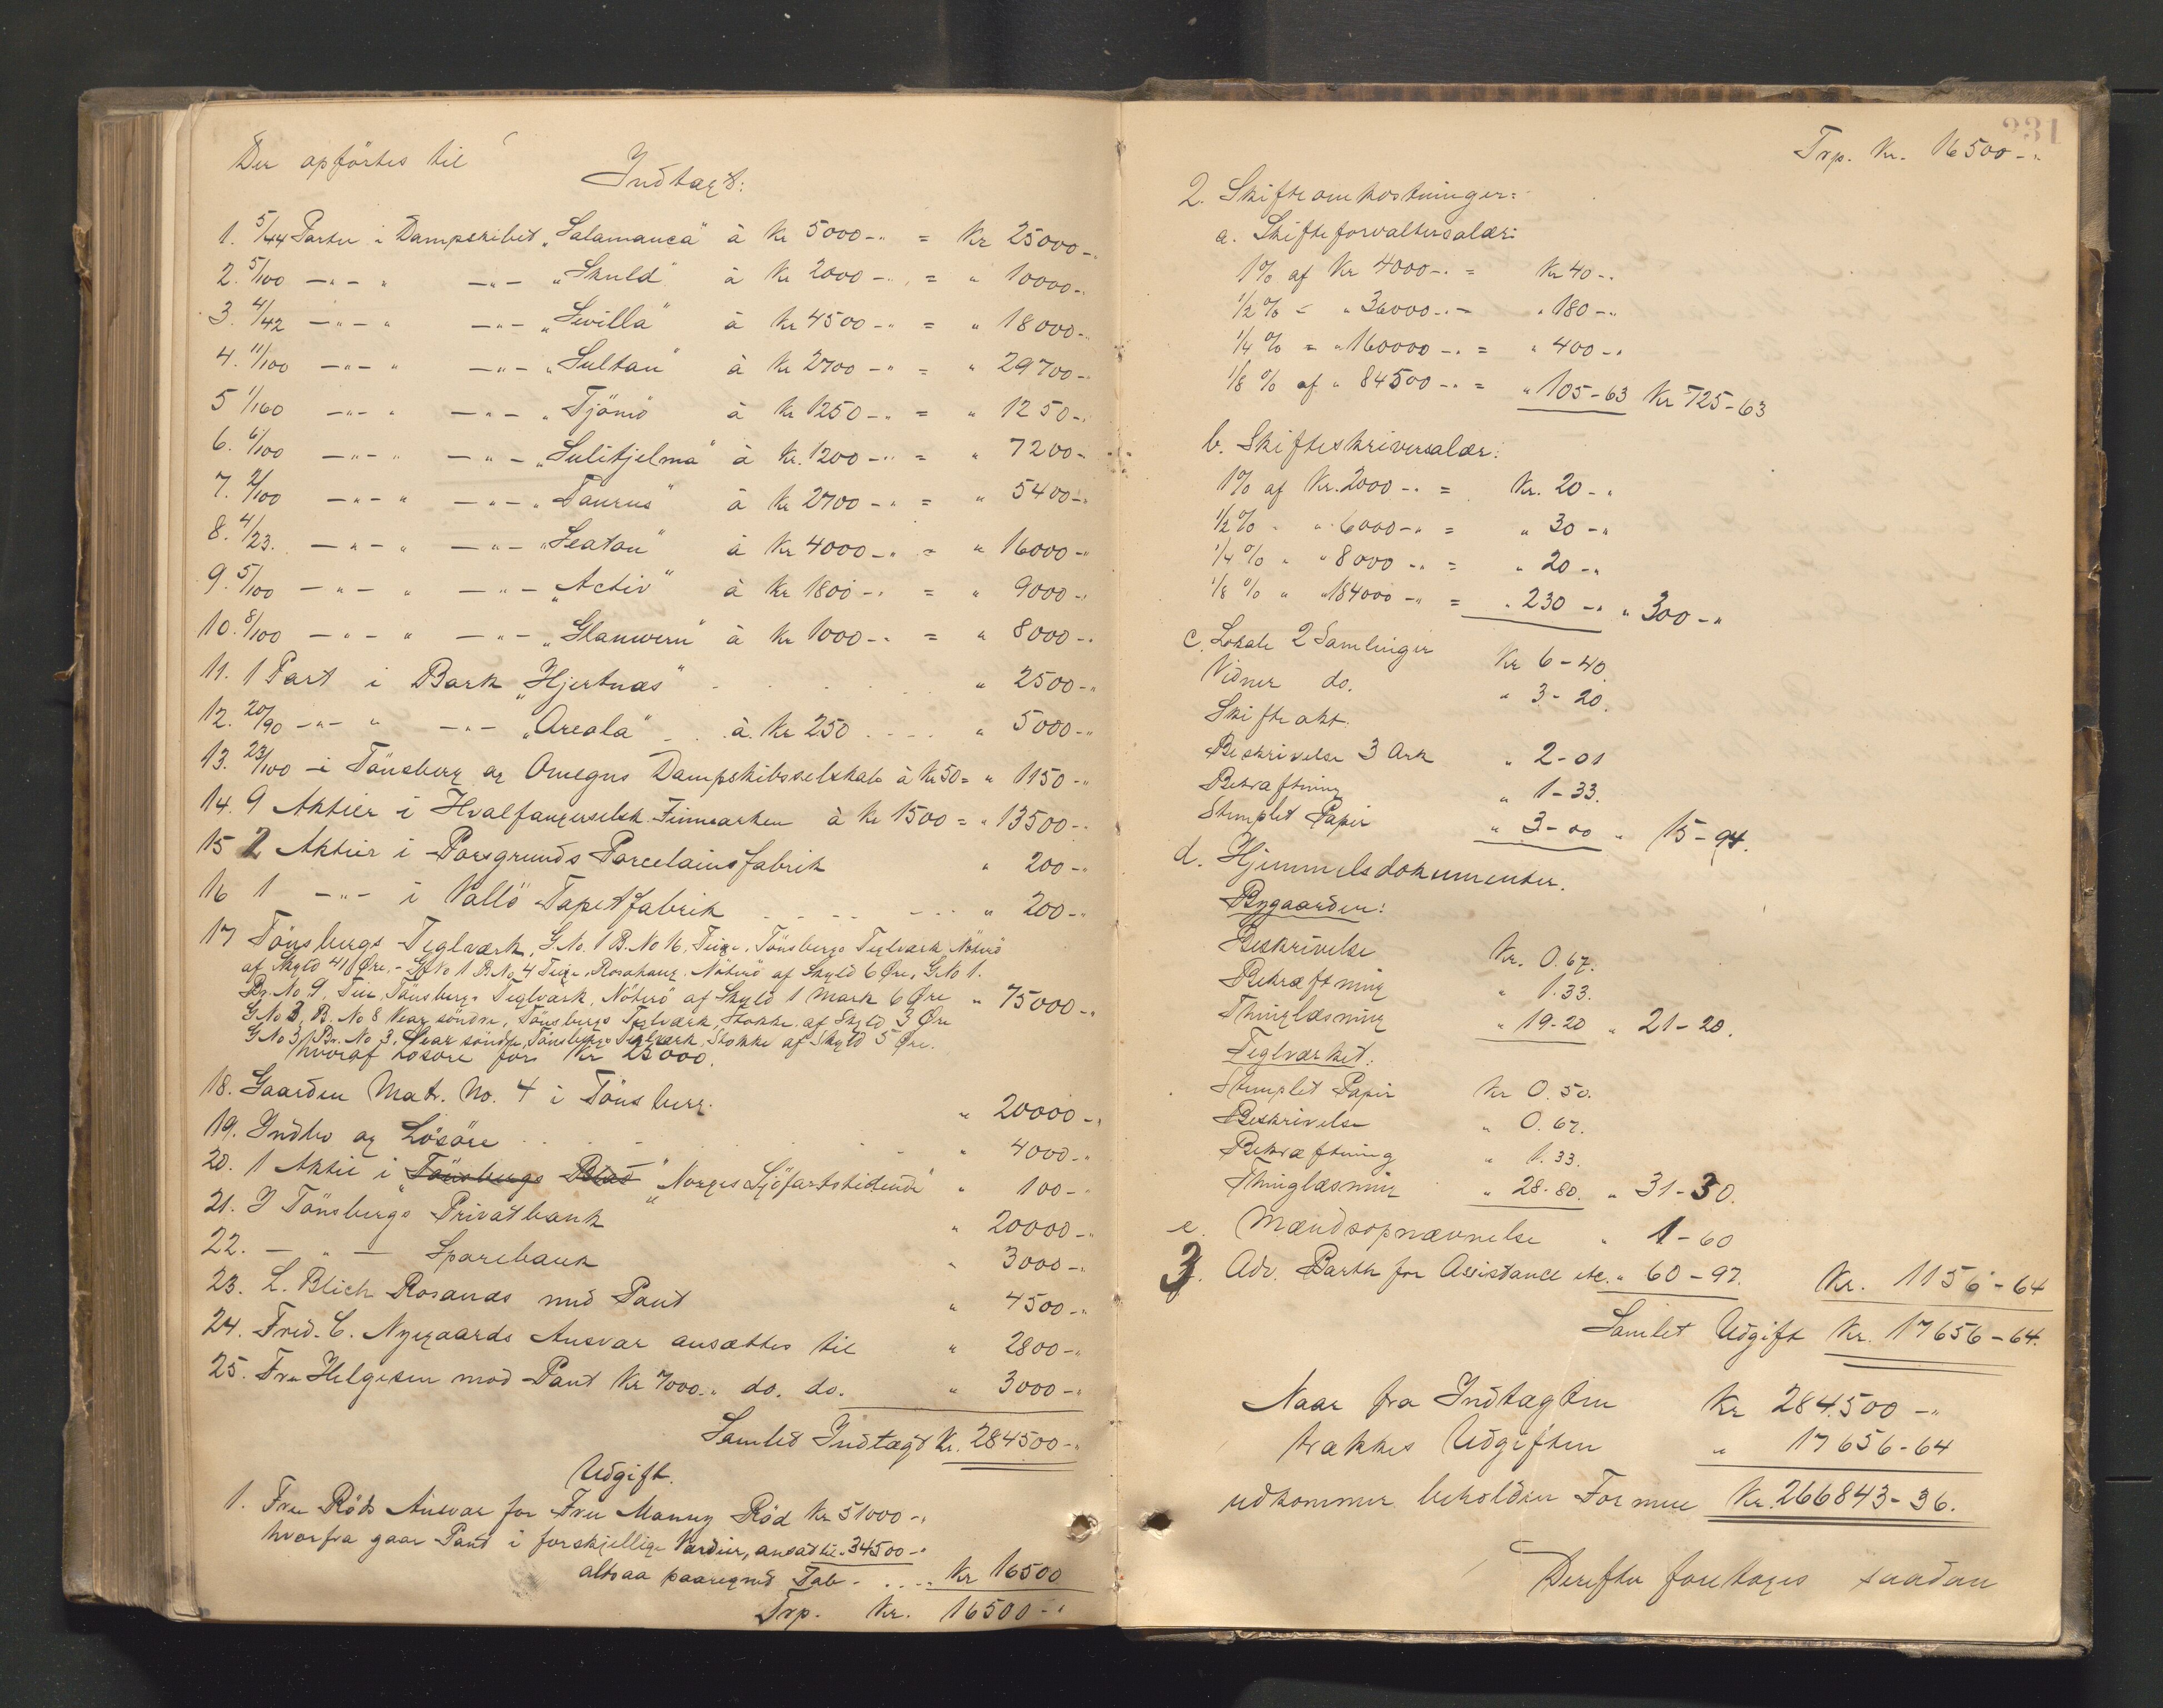 Der opførtes til
Indtægt:
1. 5/44 Parter i Dampskibet „Salamanca" à Kr 5000-„ = Kr 25000-„
2. 5/100 -„- „ -„- „Skuld" à Kr 2000-„ = „ 10000-„
3. 4/42 -„- „ -„- „Sevilla" à Kr 4500-„ = „ 18000-„
4. 11/100 -„- „ -„- „Sultan" à Kr 2700-„ = „ 29700-„
5 1/160 -„- „ -„- „Tjömö" à Kr 1250-„ = „ 1250-„
6. 6/100 -„- „ -„- „Sulitjelma" à Kr. 1200-„ = „ 7200-
7. 2/100 -„- „ -„- „Taurus" à Kr 2700-„ = „ 5400-„
8. 4/23. -„- „ -„- „Seaton" à Kr 4000-„ = „ 16000-„
9. 5/100 -„- „ -„- „Activ" à Kr 1800-„ = „ 9000-„
10. 8/100 -„- „ -„- „Glanwern" à Kr 1000-„ = „ 8000-„
11. 1 Part i Bark „Hjertnæs" „ 2500-„
12. 20/90 -„- „ -„- „Areola" à Kr 250 „ 5000-„
13. 23/100 - i Tönsberg og Omegns Dampskibsselskab à Kr 50 = „ 1150-„
14. 9 Aktier i Hvalfangerselsk. Finmarken à Kr 1500 = „ 13500-„
15 2 Aktier i Porsgrunds Porcelainsfabrik „ 200-„
16 1 -„- i Vallö Tapetfabrik „ 200-„
17 Tönsbergs Teglværk, G.No. 1 B.No 16, Teie, Tönsbergs Teglværk, Nöterö
af Skyld 41 Øre, - G.No 1 B.No 4 Teie, Rosahaug, Nöterö af Skyld 6 Øre, G.No 1.
Br. No 9, Teie, Tönsbergs Teglværk, Nöterö af Skyld 1 Mark 6 Øre „ 75000-„
G No 3, B. No 8 Vear söndre, Tönsbergs Teglværk, Stokke af Skyld 3 Øre
G No 3, Br. No 3, Vear söndre, Tönsbergs Teglværk, Stokke af Skyld 5 Øre.
hvoraf Løsøre for Kr 25000.
18. Gaarden Matr. No. 4 i Tönsberg. „ 20000-„
19. Indbo og Lösöre „ 4000-„
20. 1 Aktie i „Tönsbergs Blad" „Norges Sjöfartstidende" „ 100-„
21. I Tönsbergs Privatbank „ 20000-„
22. - „ - Sparebank „ 3000-„
23. L. Blich Rosanes mod Pant „ 4500-„
24. Fred. C. Nygaards Ansvar ansættes til „ 2800-„
25. Fru Helgesen mod Pant Kr 7000-„ do. do. „ 3000-„
Samlet Indtægt Kr. 284500-„
Udgift.
1. Fru Röds Ansvar for Fru Manny Röd Kr 51000-„
hvorfra gaar Pant i forskjellige Værdier, ansat til „ 34500-„
altsaa paaregned Tab - Kr 16500
Trp. Kr. 16500-„
231
Trp. Kr. 16500-„
2. Skifteomkostninger:
a. Skifteforvaltersalær:
1% af Kr 4000-„ = Kr 40-„
1/2% = „ 36000-„ = „ 180-„
1/4% = „ 160000-„ = „ 400-„
1/8% af „ 84500-„ = „ 105-63 Kr 725-63
b. Skifteskriversalær:
1% af Kr. 2000-„ = Kr. 20-„
1/2% „ „ 6000-„ = „ 30-„
1/4% „ „ 8000-„ = „ 20-„
1/8% „ „ 184000-„ = „ 230-„ „ 300-„
c. Lokale 2 Samlinger Kr 6-40.
Vidner do. „ 3-20.
Skifteakt.
Beskrivelse 3 Ark „ 2-01
Bekræftning „ 1-33.
Stemplet Papir „ 3-00 „ 15-94.
d. Hjemmelsdokumenter.
Bygaarden:
Beskrivelse Kr. 0.67.
Bekræftning „ 1.33.
Thinglæsning „ 19-20 „ 21-20.
Teglværket:
Stemplet Papir Kr 0.50.
Beskrivelse „ 0.67.
Bekræftning „ 1.33.
Thinglæsning „ 28-80. „ 31-30.
e. Mændsopnævnelse „ 1-60
3. Adv. Barth for Assistance etc. „ 60-97. Kr. 1156-64
Samlet Udgift Kr. 17656-64.
Naar fra Indtægten Kr 284500-„
trækkes Udgiften „ 17656-64
udkommer beholden Formue Kr. 266843-36.
Derefter foretoges saadan